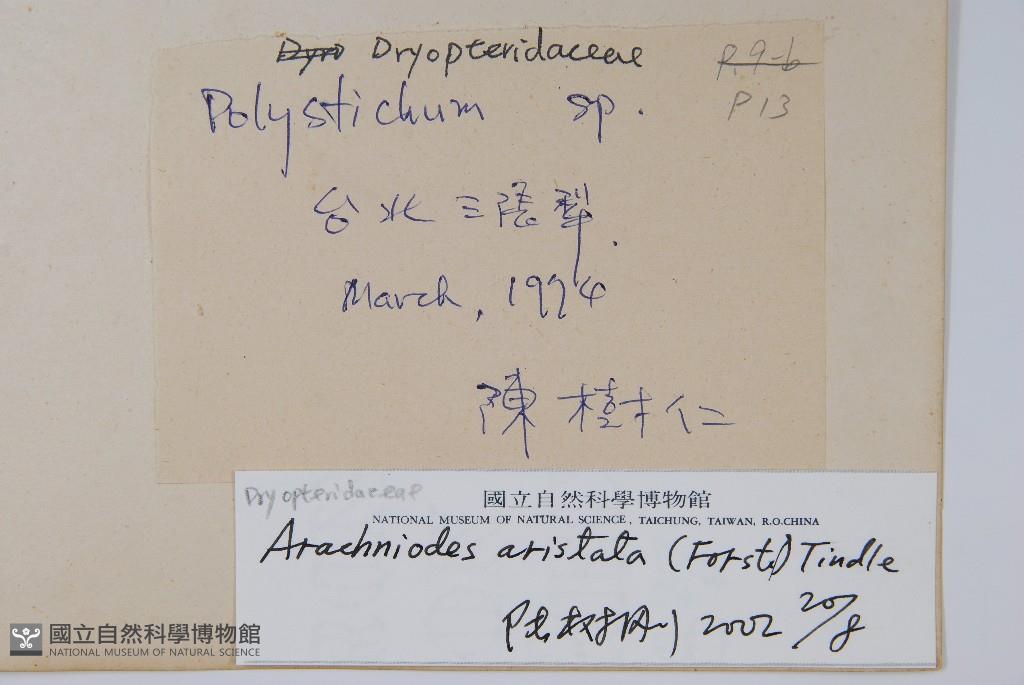 Dryopteridaceae
R.9-b
P13
Polystichum sp.
台北 三陰犁.
March, 1974
陳樹仁
Dryopteridaceae
國立自然科學博物館
NATIONAL MUSEUM OF NATURAL SCIENCE, TAICHUNG, TAIWAN, R.O.CHINA
Arachniodes aristata (Forst.) Tindle
2002 20/8
國立自然科學博物館
NATIONAL MUSEUM OF NATURAL SCIENCE